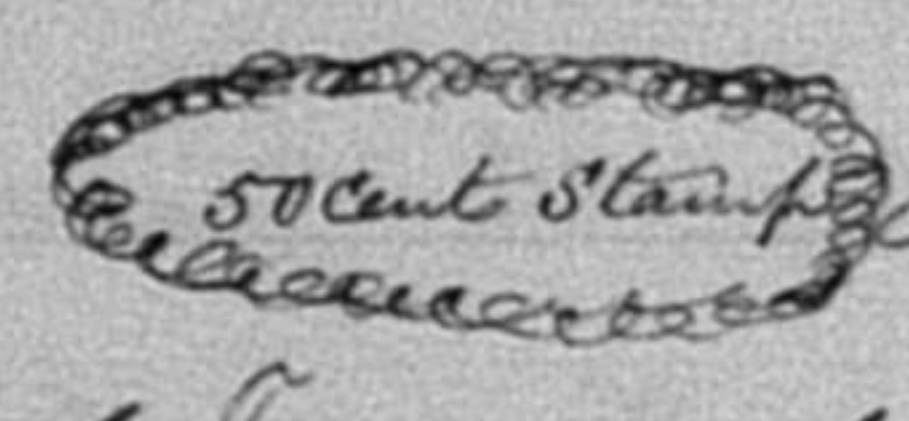 50 Cent Stamp